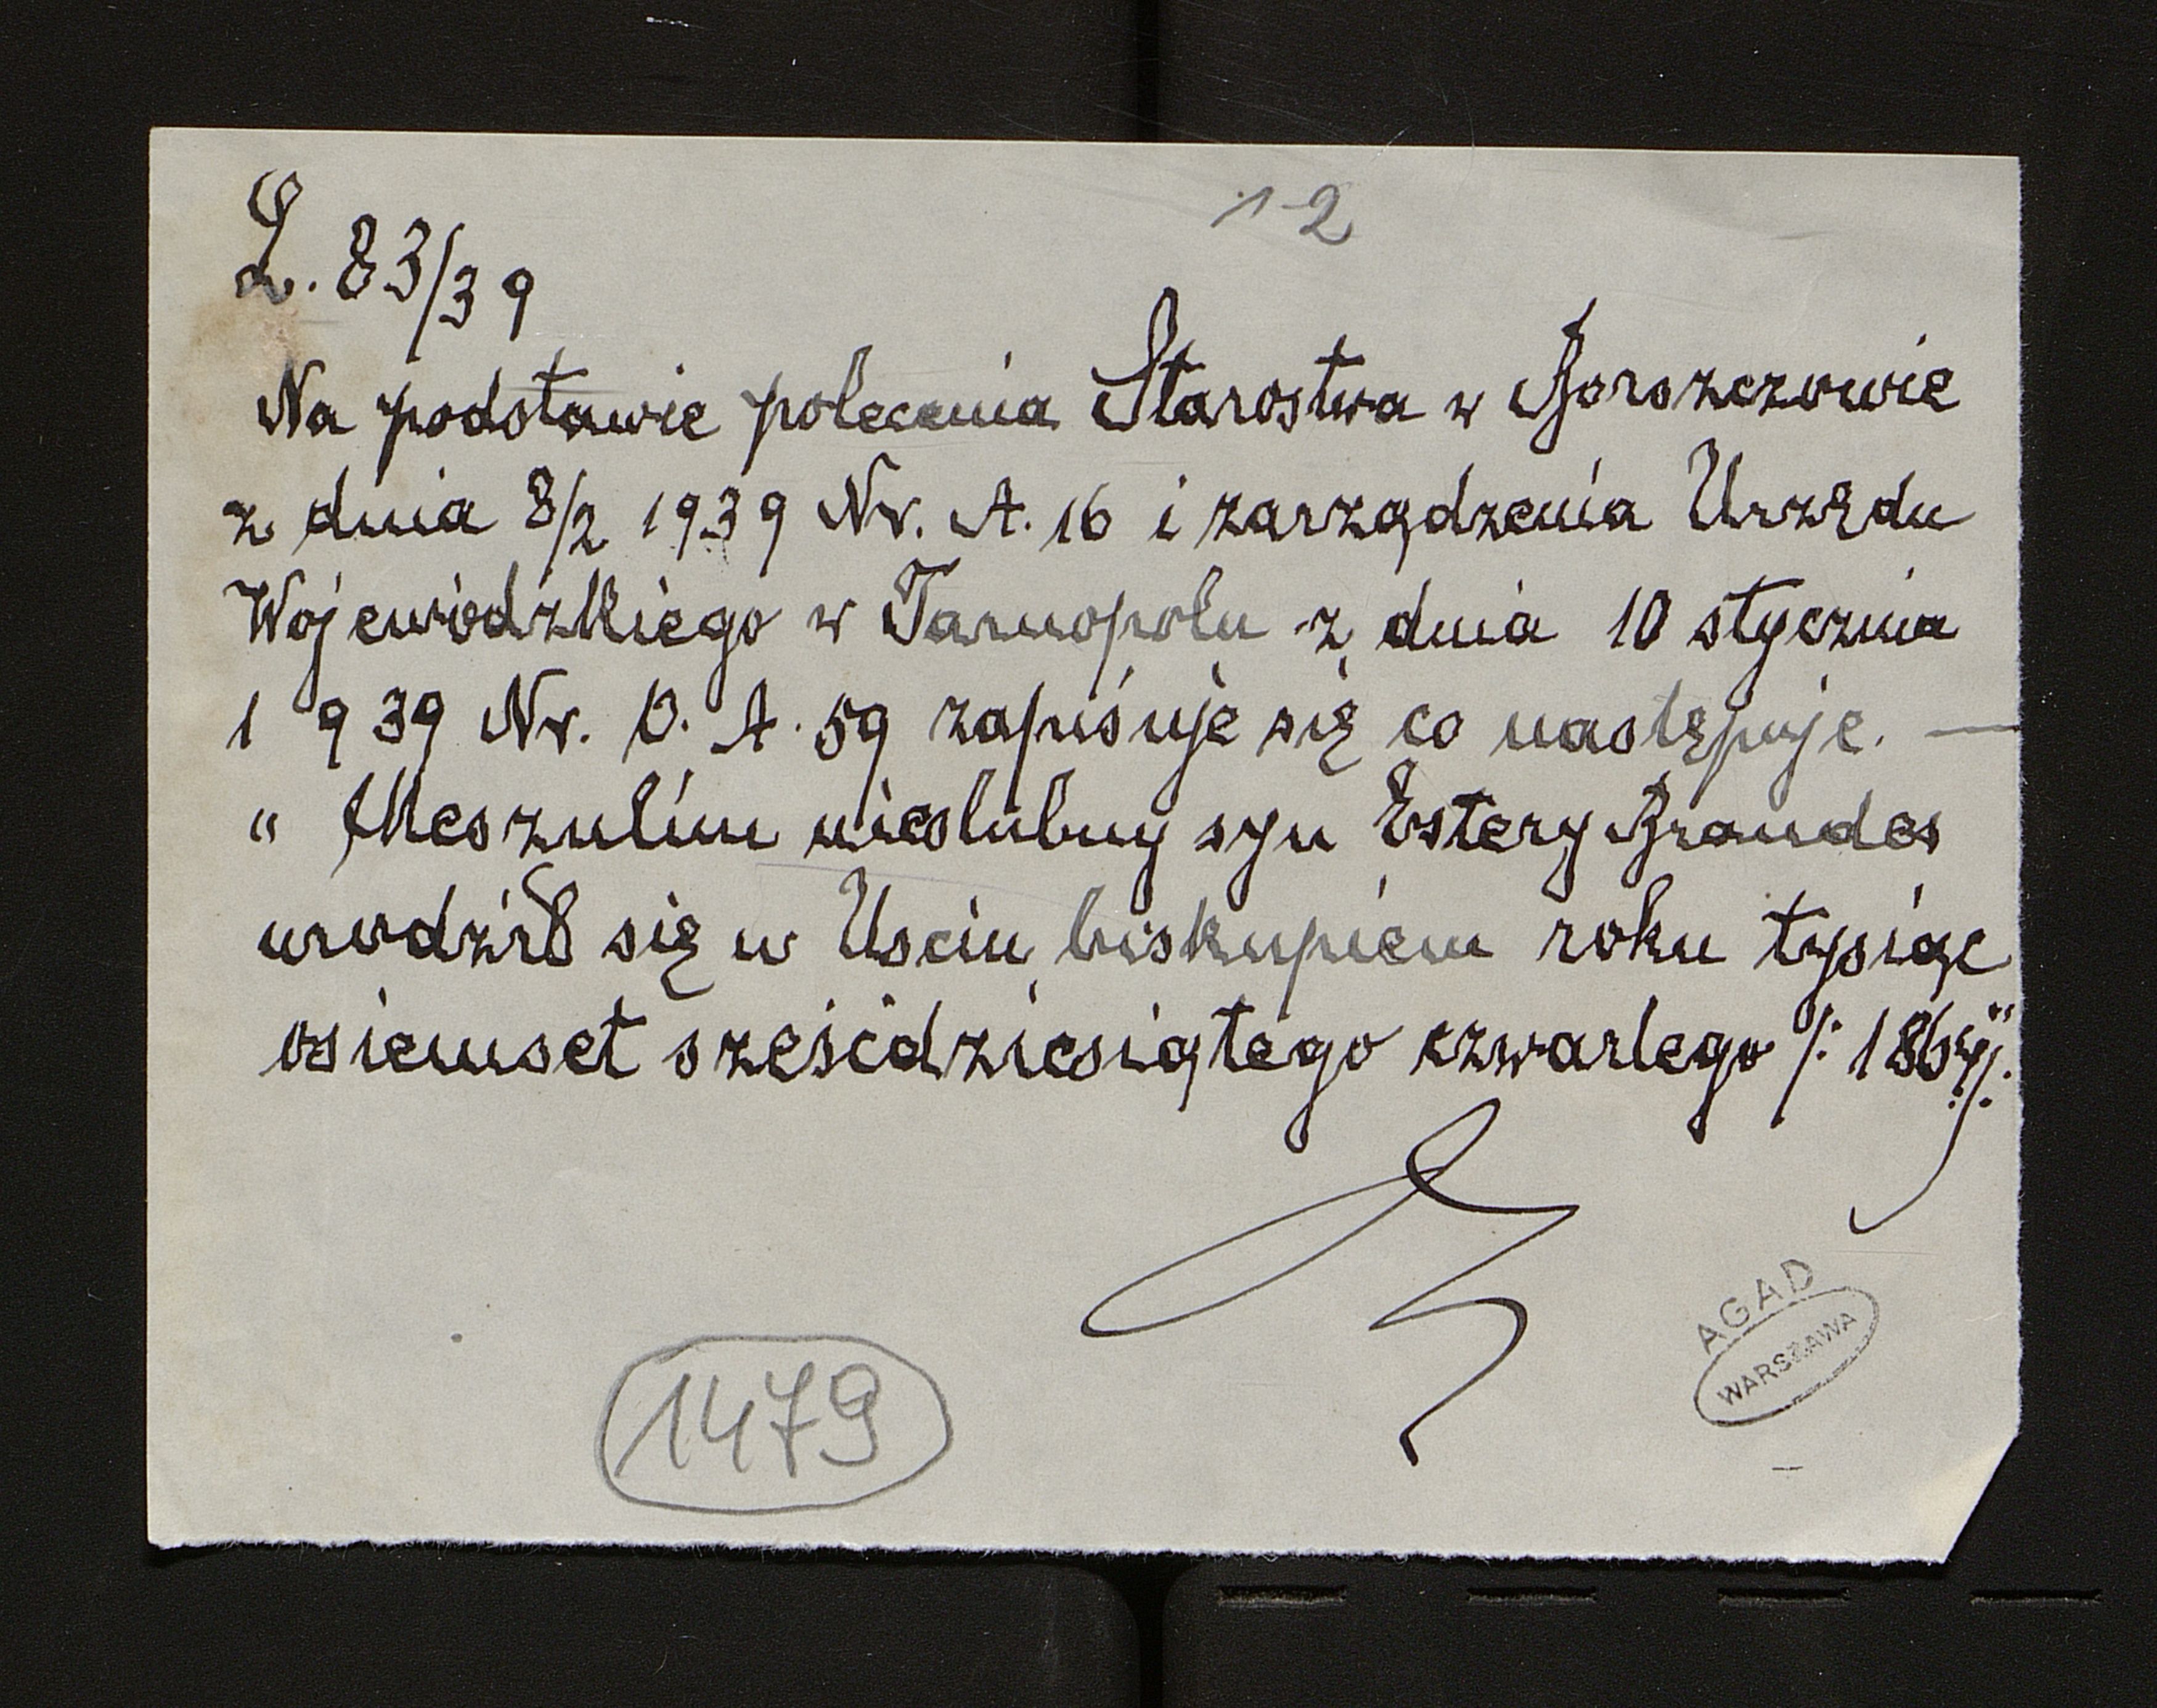 1-2
L. 83/39
Na podstawie polecenia Starostwa w Borszczowie
z dnia 8/2 1939 Nr. A. 16 i zarządzenia Urzędu
Wojewódzkiego w Tarnopolu z dnia 10 stycznia
1939 Nr. O. A. 59 zapisuje się co następuje. —
" Meszulim nieslubny syn Estery Brandes
urodził się w Usciu biskupiem roku tysiąc
osiemset sześćdziesiątego czwartego /: 1864 :/."
AGAD
WARSZAWA
1479